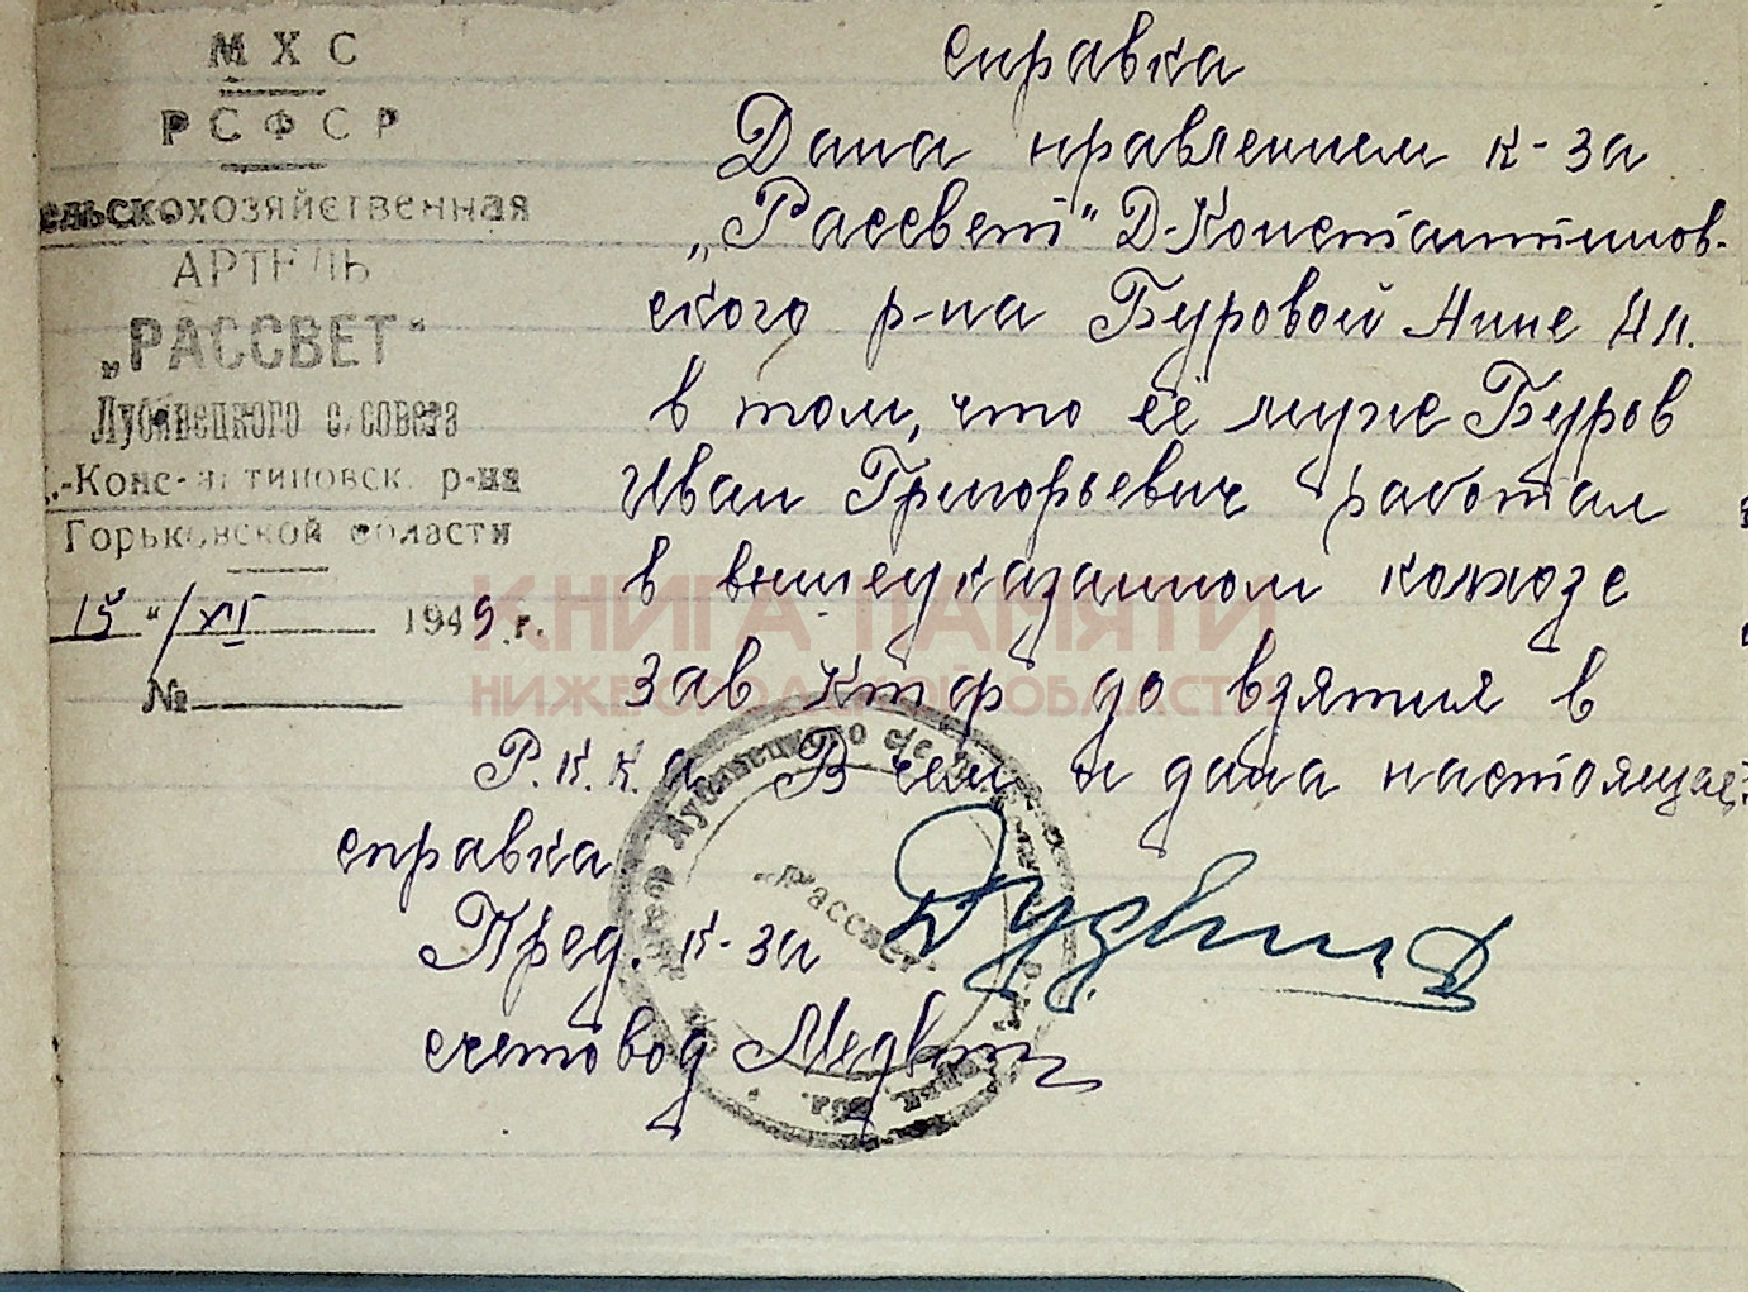 МХС
РСФСР
ельскохозяйственная
АРТЕЛЬ
„РАССВЕТ“
Лубянецкого с/совета
.-Константиновск. р-на
Горьковской области
15 "/XII 1949 г.
№
Справка
Дана правлением к-за
„Рассвет" Д-Константинов-
ского р-на Буровой Анне
в том, что её муже Буров
Иван Григорьевич работал
в вышеуказанном колхозе
зав ктф до взятия в
Р.К.К.А. В чем и дана настоящая
справка
Пред. к-за
счетовод
„Рассвет"
КНИГА ПАМЯТИ
НИЖЕГОРОДСКОЙ ОБЛАСТИ